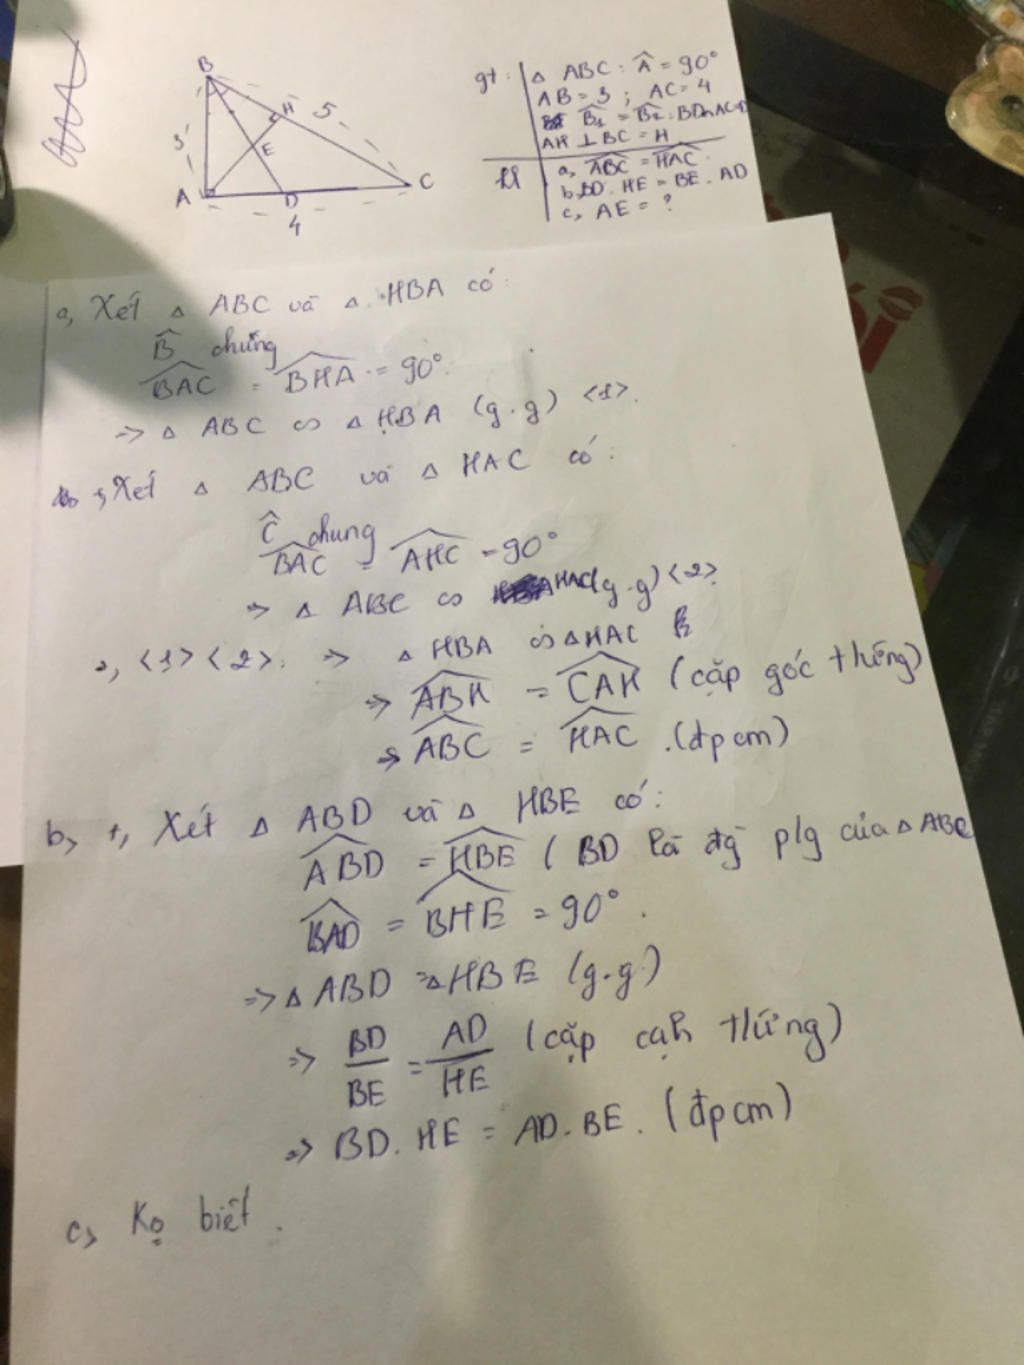 B
H
5
3
E
A
D
C
4
gt: Δ ABC: Â = 90°
AB = 3; AC = 4
B̂₁ = B̂₂: BD∩AC=D
AH ⊥ BC = H
kl a, ABC = HAC
b, BD. HE = BE. AD
c, AE = ?
a, Xét Δ ABC và Δ HBA có:
B̂ chung
BAC = BHA = 90°.
=> Δ ABC ∽ Δ HBA (g.g) <1>.
+, Xét Δ ABC và Δ HAC có:
Ĉ chung
BAC = AHC = 90°
=> Δ ABC ∽ HAC (g.g) <2>
<1> <2>: => Δ HBA ∽ Δ HAC
=> ABH = CAH (cặp góc tứng)
=> ABC = HAC. (đpcm)
b, +, Xét Δ ABD và Δ HBE có:
ABD = HBE ( BD là đg p/g của Δ ABC
BAD = BHE = 90°.
=> Δ ABD = Δ HBE (g.g)
=> BD/BE = AD/HE (cặp cạh tứng)
=> BD. HE = AD. BE. (đpcm)
c, Kọ biết.